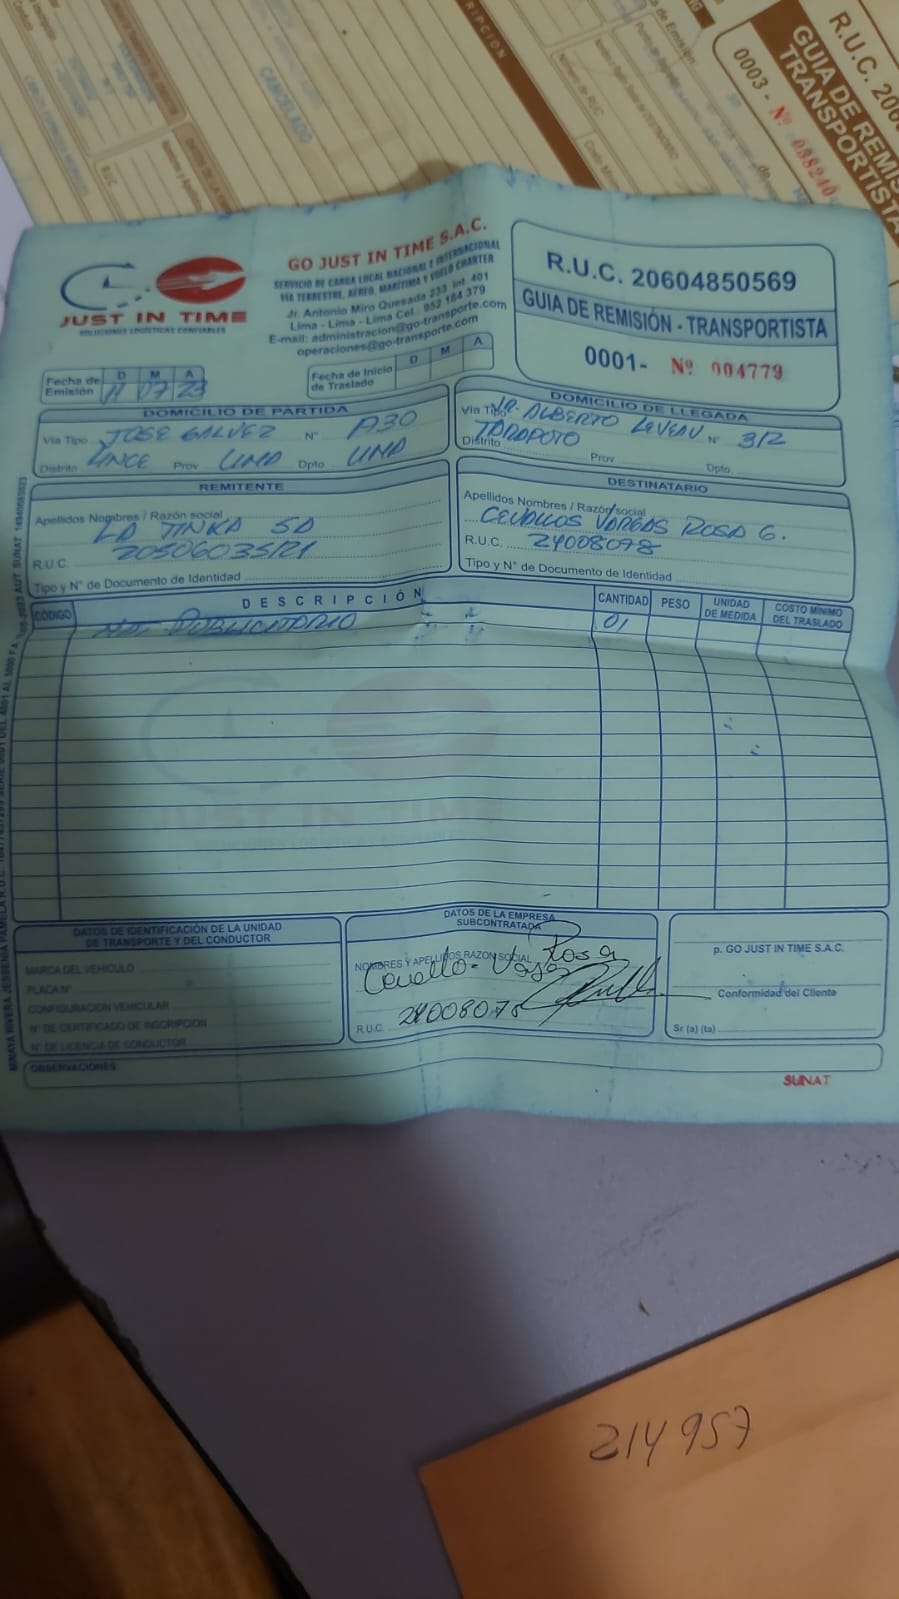 R.U.C. 200
GUIA DE REMIS
TRANSPORTISTA
0003 - Nº 088240
CANCELADO
JUST IN TIME
SOLUCIONES LOGISTICAS CONFIABLES
GO JUST IN TIME S.A.C.
SERVICIO DE CARGA LOCAL NACIONAL E INTERNACIONAL
VÍA TERRESTRE, AÉREO, MARÍTIMA Y VUELO CHARTER
Jr. Antonio Miro Quesada 233 Int. 401
Lima - Lima - Lima Cel. 952 184 379
E-mail: administracion@go-transporte.com
operaciones@go-transporte.com
R.U.C. 20604850569
GUIA DE REMISIÓN - TRANSPORTISTA
0001- Nº 004779
Fecha de Emisión D M A 11 07 23
Fecha de Inicio de Traslado D M A
DOMICILIO DE PARTIDA
Vía Tipo JOSE GALVEZ N° 1730
Distrito LINCE Prov LIMA Dpto. LIMA
DOMICILIO DE LLEGADA
Vía Tipo JR. ALBERTO LEVEAU N° 312
Distrito TARAPOTO Prov Dpto.
REMITENTE
Apellidos Nombres / Razón social
LA TINKA SA
R.U.C. 20506035121
Tipo y N° de Documento de Identidad
DESTINATARIO
Apellidos Nombres / Razón social
CEVALLOS VARGAS ROSA G.
R.U.C. 24008078
Tipo y N° de Documento de Identidad
CÓDIGO DESCRIPCIÓN CANTIDAD PESO UNIDAD DE MEDIDA COSTO MINIMO DEL TRASLADO
PUBLICITARIO 01
JUST IN TIME
DATOS DE IDENTIFICACIÓN DE LA UNIDAD
DE TRANSPORTE Y DEL CONDUCTOR
MARCA DEL VEHICULO
PLACA N°
CONFIGURACION VEHICULAR
N° DE CERTIFICADO DE INSCRIPCION
N° DE LICENCIA DE CONDUCTOR
DATOS DE LA EMPRESA
SUBCONTRATADA
NOMBRES Y APELLIDOS RAZON SOCIAL Rosa
R.U.C. 24008078
p. GO JUST IN TIME S.A.C.
Conformidad del Cliente
Sr (a) (ta)
OBSERVACIONES
SUNAT
214957